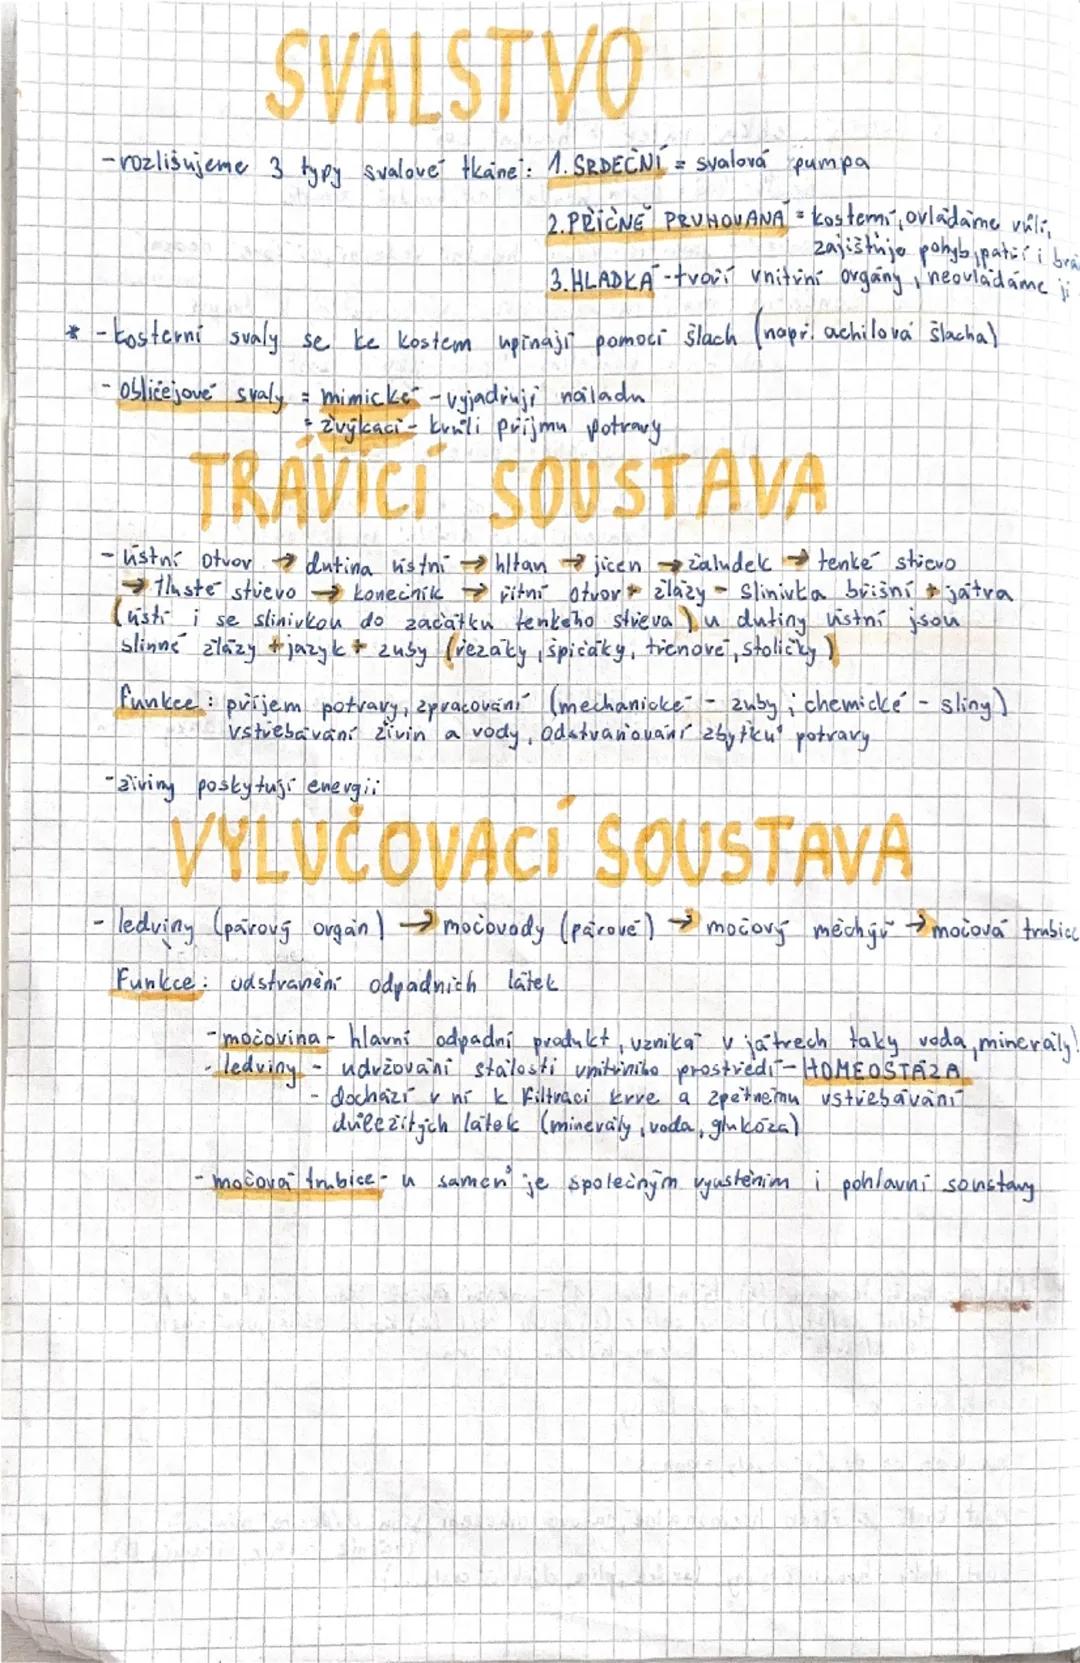 SVALSTVO
- rozlišujeme 3 typy svalové tkáně: 1. SRDEČNÍ = svalová pumpa
2. PŘÍČNĚ PRUHOVANÁ = kosterní, ovládáme vůlí,
zajišťuje pohyb, patří i brá
3. HLADKÁ - tvoří vnitřní orgány, neovládáme ji
* - kosterní svaly se ke kostem upínají pomocí šlach (např. achilová šlacha)
- obličejové svaly = mimické - vyjadřují náladu
= žvýkací - kvůli příjmu potravy
TRÁVÍCÍ SOUSTAVA
- ústní otvor → dutina ústní → hltan → jícen → žaludek → tenké střevo
→ tlusté střevo → konečník → řitní otvor + žlázy - slinivka břišní + játra
(ústí i se slinivkou do začátku tenkého střeva) u dutiny ústní jsou
slinné žlázy + jazyk + zuby (řezáky, špičáky, třenové, stoličky)
Funkce: příjem potravy, zpracování (mechanické - zuby; chemické - sliny)
vstřebávání živin a vody, odstraňování zbytků potravy
- živiny poskytují energii
VYLUČOVACÍ SOUSTAVA
- ledviny (párový orgán) → močovody (párové) → močový měchýř → močová trubice
Funkce: odstranění odpadních látek
- močovina - hlavní odpadní produkt, vzniká v játrech taky voda, minerály!
- ledviny - udržování stálosti vnitřního prostředí - HOMEOSTÁZA
- dochází v ní k filtraci krve a zpětnému vstřebávání
důležitých látek (minerály, voda, glukóza)
- močová trubice - u samců je společným vyústěním i pohlavní soustavy